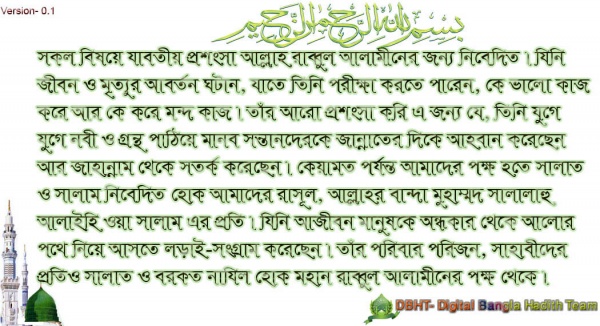 Version- 0.1
بسم الله الرحمن الرحيم
সকল বিষয়ে যাবতীয় প্রশংসা আল্লাহ রাব্বুল আলামীনের জন্য নিবেদিত। যিনি
জীবন ও মৃত্যুর আবর্তন ঘটান, যাতে তিনি পরীক্ষা করতে পারেন, কে ভালো কাজ
করে আর কে করে মন্দ কাজ। তাঁর আরো প্রশংসা করি এ জন্য যে, তিনি যুগে
যুগে নবী ও গ্রন্থ পাঠিয়ে মানব সন্তানদেরকে জান্নাতের দিকে আহবান করেছেন
আর জাহান্নাম থেকে সতর্ক করেছেন। কেয়ামত পর্যন্ত আমাদের পক্ষ হতে সালাত
ও সালাম নিবেদিত হোক আমাদের রাসূল, আল্লাহর বান্দা মুহাম্মদ সালালাহু
আলাইহি ওয়া সালাম এর প্রতি। যিনি আজীবন মানুষকে অন্ধকার থেকে আলোর
পথে নিয়ে আসতে লড়াই-সংগ্রাম করেছেন। তাঁর পরিবার পরিজন, সাহাবীদের
প্রতিও সালাত ও বরকত নাযিল হোক মহান রাব্বুল আলামীনের পক্ষ থেকে।
DBHT- Digital Bangla Hadith Team